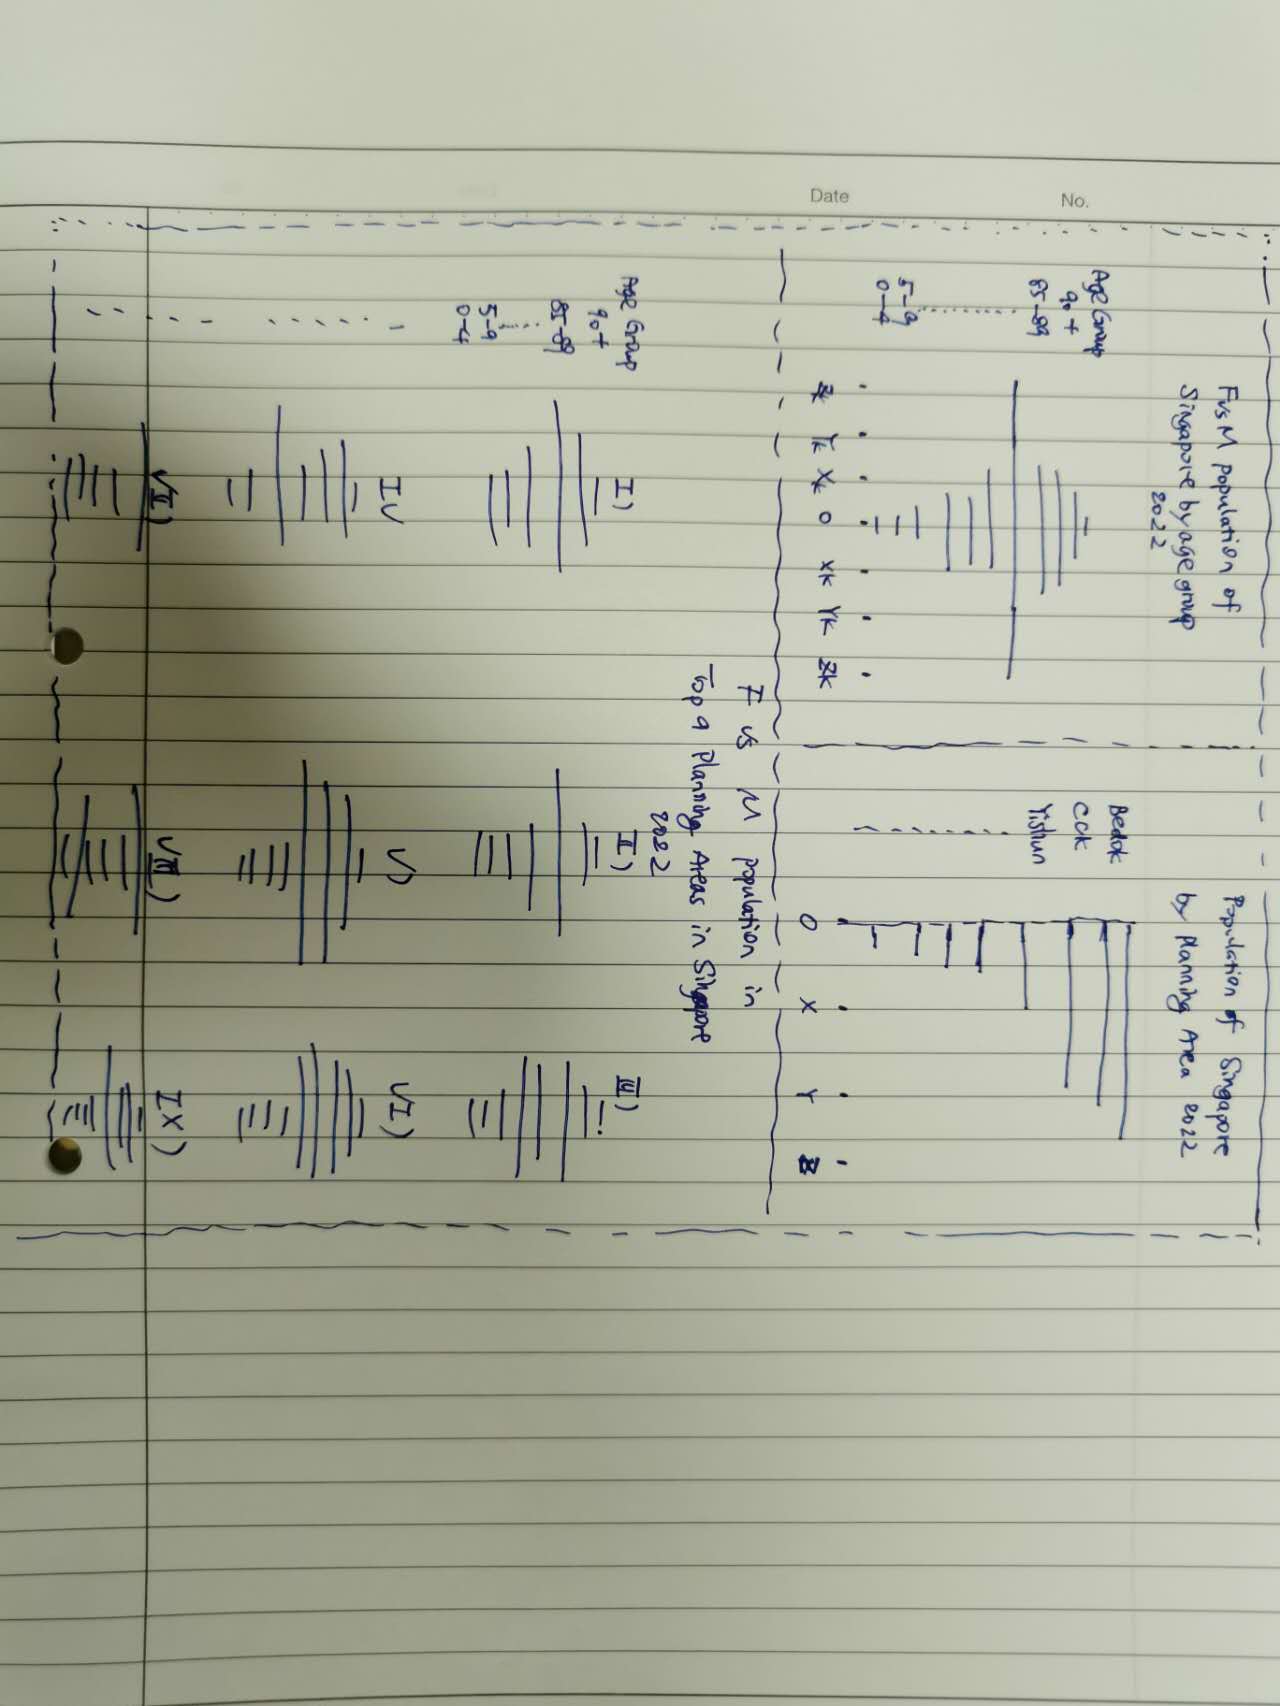 No.
Date
F vs M population of
Singapore by age group
2022
Age Group
90+
85-89
5-9
0-4
Yk
Xk
0
Xk
Yk
Zk
Population of Singapore
by Planning Area 2022
Bedok
CCK
Yishun
0
X
Y
Z
F vs M population in
Top 9 Planning Areas in Singapore
2022
Age Group
90+
85-89
5-9
0-4
I)
II)
III)
IV
V
VI)
VII)
VIII)
IX)